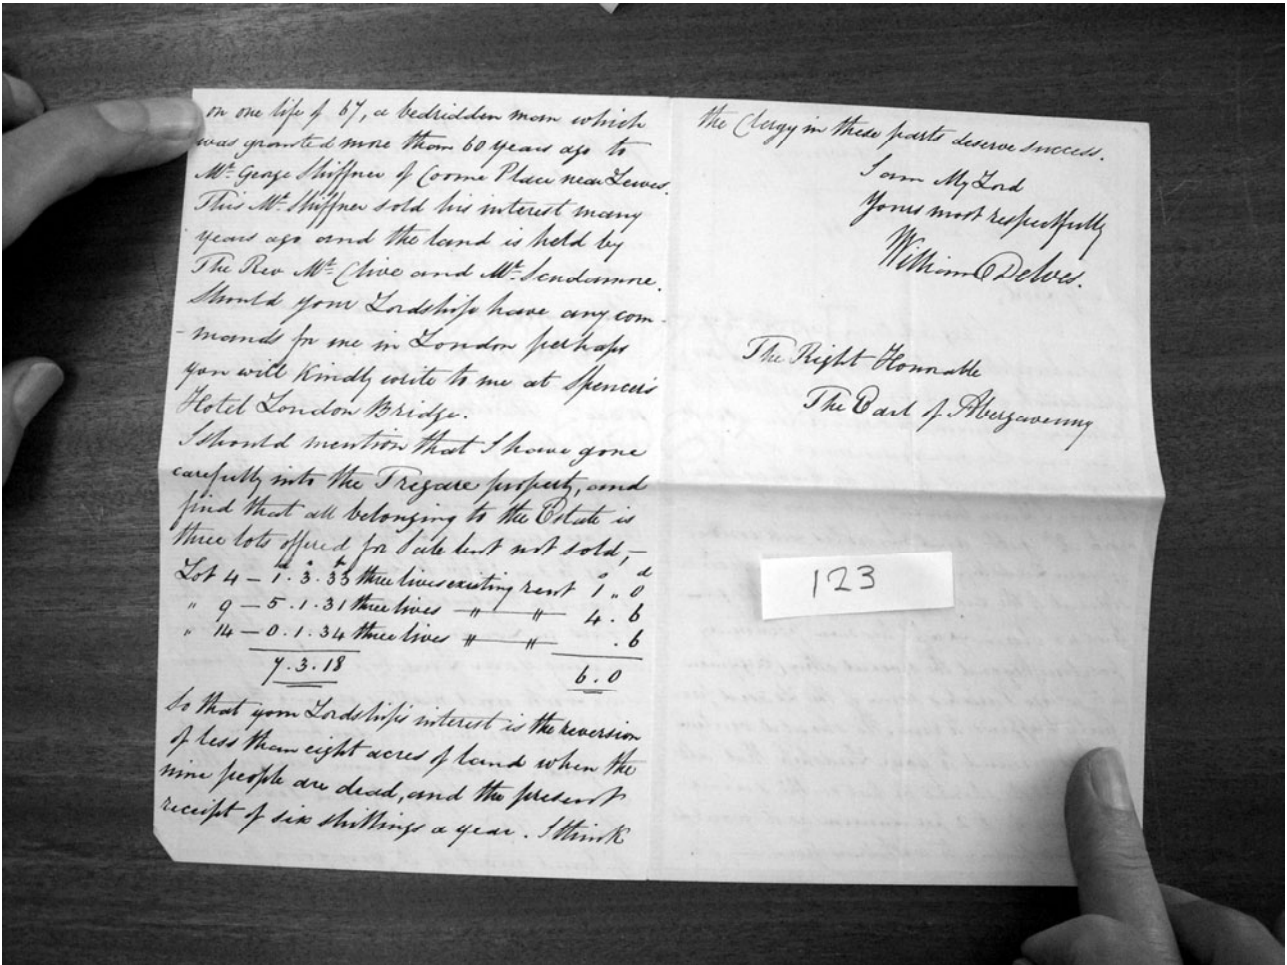 on one life of 67, a bedridden man which
was granted more than 60 years ago to
Mr. George Shiffner of Coome Place near Lewes.
This Mr. Shiffner sold his interest many
years ago and the land is held by
The Rev Mr. Clive and Mr. Scudamore.
Should your Lordship have any com-
-mands for me in London perhaps
you will kindly write to me at Spencer's
Hotel London Bridge.
I should mention that I have gone
carefully into the Tregare property, and
find that all belonging to the Estate is
three lots offered for Sale but not sold, –
a r p s d
Lot 4 – 1.3.33 three lives existing rent 1 " 0
" 9 – 5.1.31 three lives – " – " 4.6
" 14 – 0.1.34 three lives – " – " .6
7.3.18 6.0
So that your Lordship's interest is the reversion
of less than eight acres of land when the
nine people are dead, and the present
receipt of six shillings a year. I think
the Clergy in these parts deserve success.
I am My Lord
Yours most respectfully
William Delves.
The Right Honorable
The Earl of Abergavenny
123